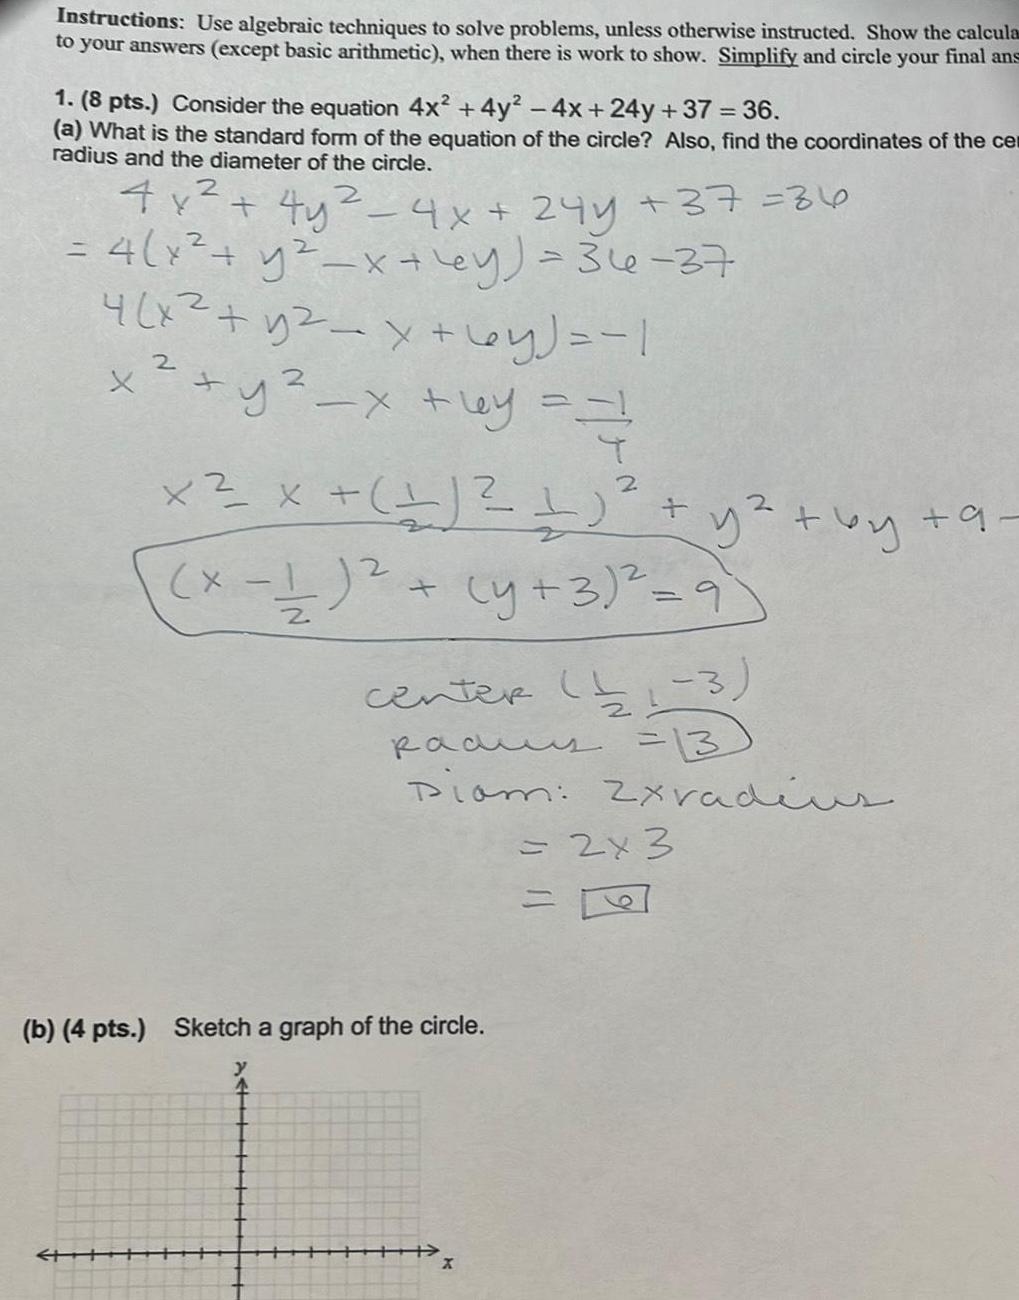 Instructions: Use algebraic techniques to solve problems, unless otherwise instructed. Show the calcula
to your answers (except basic arithmetic), when there is work to show. Simplify and circle your final ans
1. (8 pts.) Consider the equation 4x² + 4y² – 4x + 24y + 37 = 36.
(a) What is the standard form of the equation of the circle? Also, find the coordinates of the cer
radius and the diameter of the circle.
4x² + 4y² – 4x + 24y + 37 = 36
= 4(x² + y² – x + 6y) = 36 – 37
4(x² + y² – x + 6y) = –1
x² + y² – x + 6y = –1/4
x² – x + (1/2)² – 1/2)² + y² + 6y + 9 –
(x – 1/2)² + (y + 3)² = 9
center (1/2, –3)
Radius = 3
Diam: 2xradius
= 2x3
= 6
(b) (4 pts.) Sketch a graph of the circle.
y
x